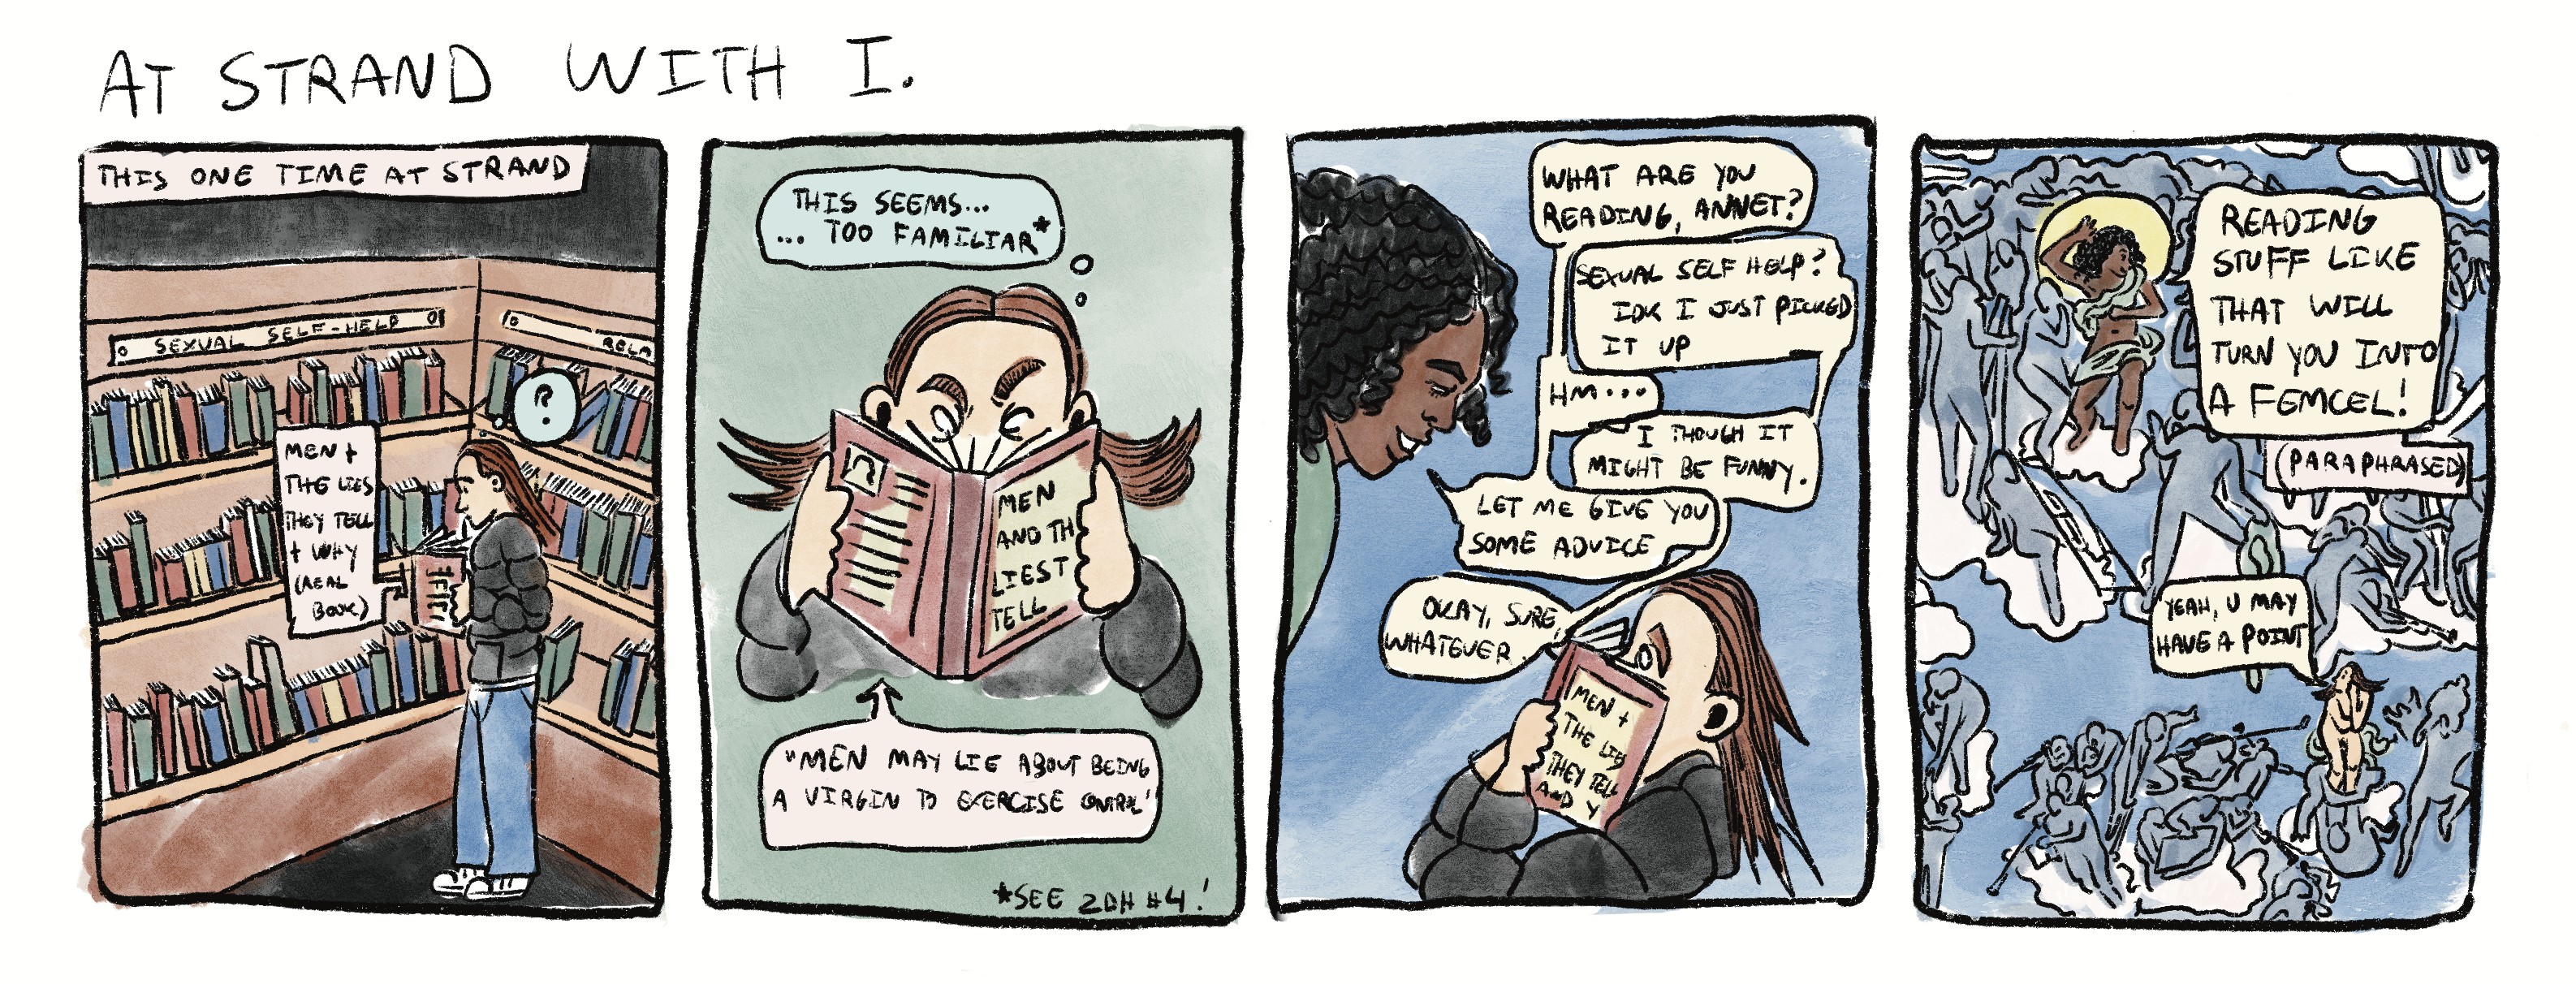 AT STRAND WITH I.
THIS ONE TIME AT STRAND
SEXUAL SELF-HELP
RELA
?
MEN +
THE LIES
THEY TELL
+ WHY
(REAL
BOOK)
THIS SEEMS...
... TOO FAMILIAR*
MEN
AND TH
LIEST
TELL
"MEN MAY LIE ABOUT BEING
A VIRGIN TO EXERCISE CONTROL"
*SEE 2DH #4!
WHAT ARE YOU
READING, ANNET?
SEXUAL SELF HELP?
IDK I JUST PICKED
IT UP
HM...
I THOUGH IT
MIGHT BE FUNNY.
LET ME GIVE YOU
SOME ADVICE
OKAY, SURE,
WHATEVER.
MEN +
THE LIES
THEY TELL
AND Y
READING
STUFF LIKE
THAT WILL
TURN YOU INTO
A FEMCEL!
(PARAPHRASED)
YEAH, U MAY
HAVE A POINT